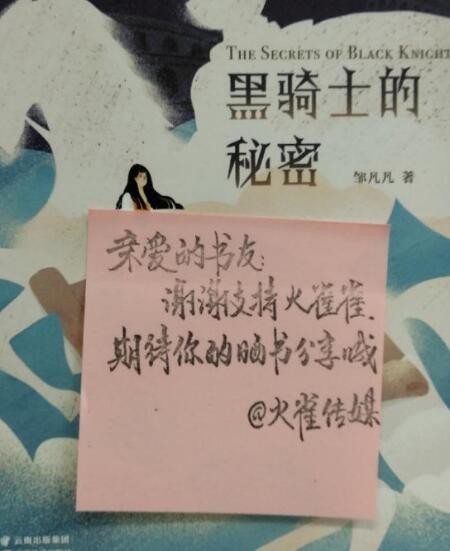 THE SECRETS OF BLACK KNIGHT
黑骑士的
秘密
邹凡凡 著
亲爱的书友：
谢谢支持火雀雀、
期待你的晒书分享哦
@火雀传媒
云南出版集团